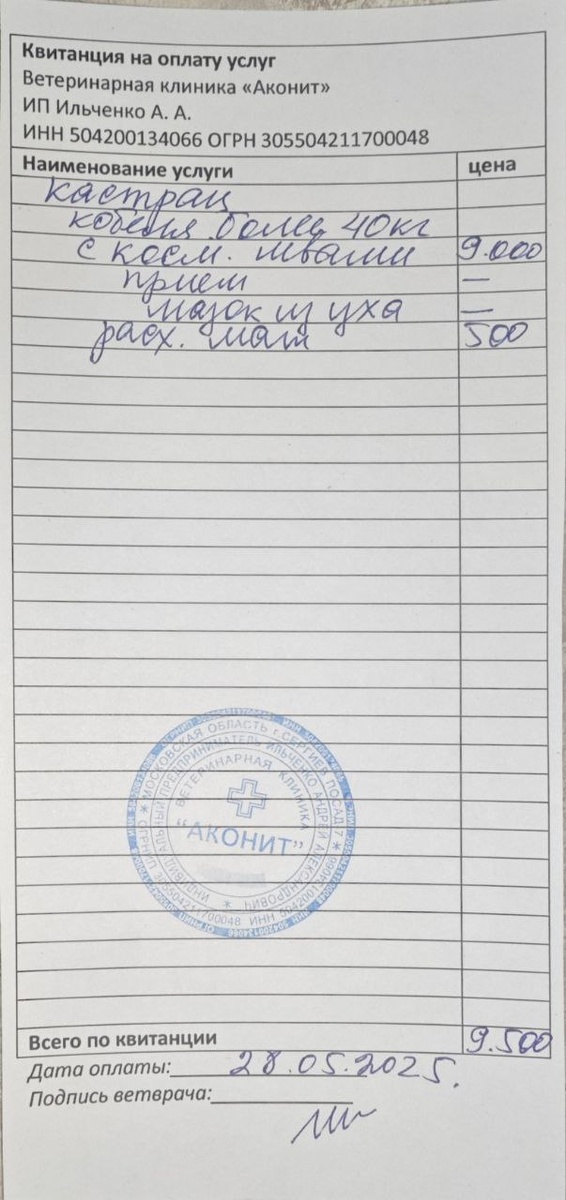 Квитанция на оплату услуг
Ветеринарная клиника «Аконит»
ИП Ильченко А. А.
ИНН 504200134066 ОГРН 305504211700048
Наименование услуги цена
кастрац
кобеля более 40кг
с косм. швами 9.000
прием —
мазок из уха —
расх. мат 500
МОСКОВСКАЯ ОБЛАСТЬ г. СЕРГИЕВ ПОСАД-7
ИНДИВИДУАЛЬНЫЙ ПРЕДПРИНИМАТЕЛЬ ИЛЬЧЕНКО АНДРЕЙ АЛЕКСАНДРОВИЧ
ВЕТЕРИНАРНАЯ КЛИНИКА
"АКОНИТ"
305504211700048 ИНН 504200134066
Всего по квитанции 9.500
Дата оплаты: 28.05.2025.
Подпись ветврача: